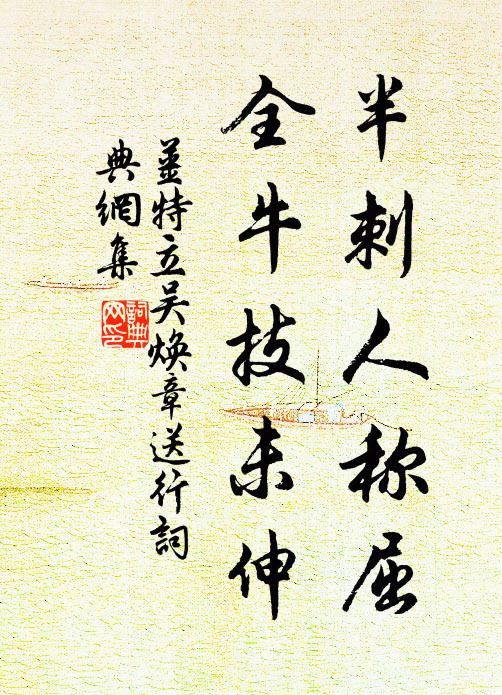 半刺人称屈
全牛技未伸
姜特立吴焕章送行詞
典網集
詞典网印